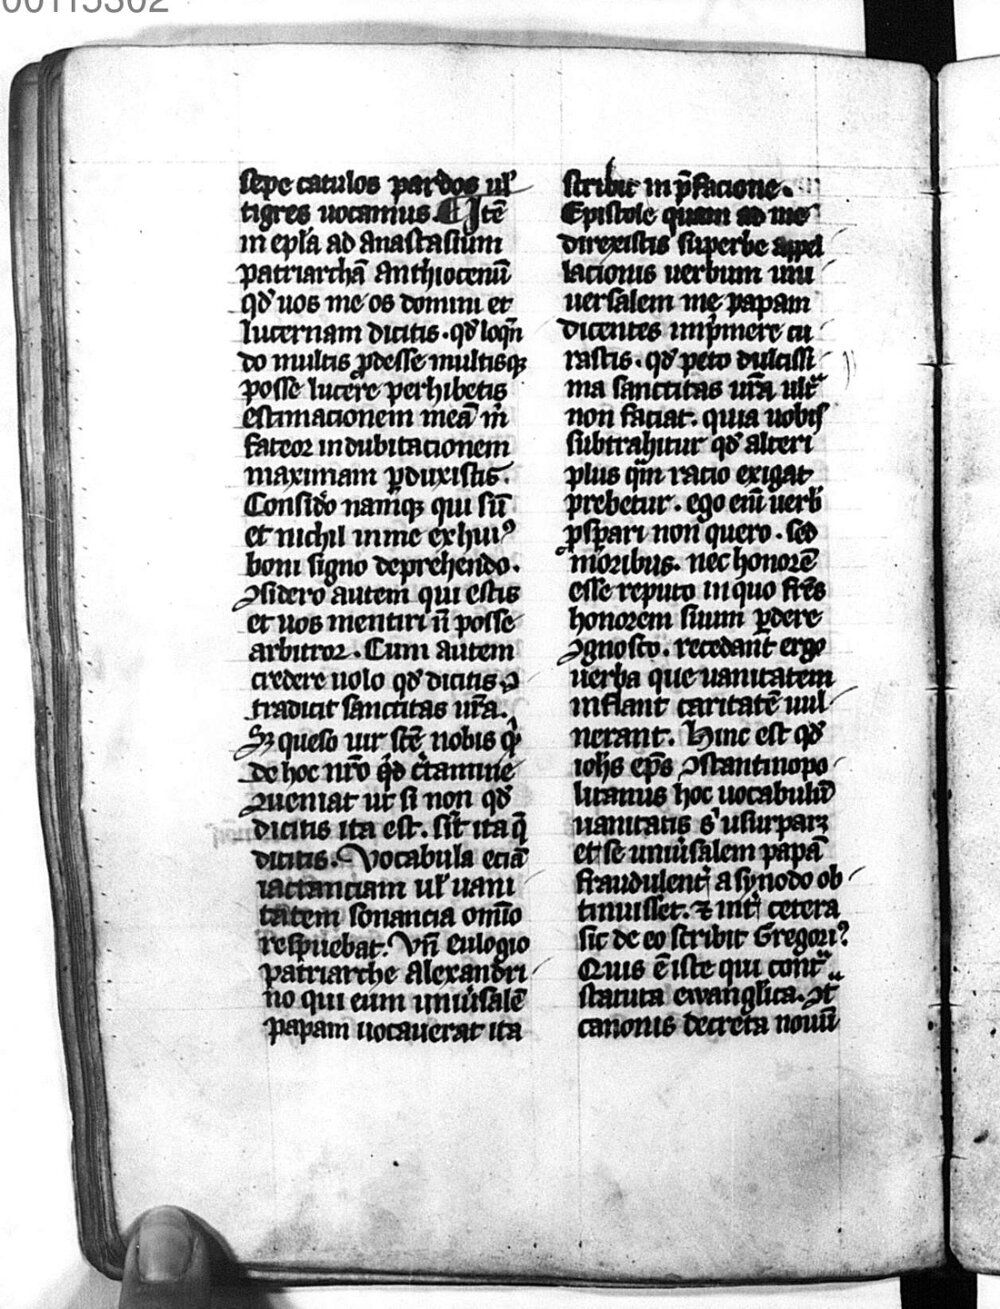 00115302
sepe catulos pardos ul̛
tigres uocamus. Itē
in epl̄a ad anastasium
patriarchā anthiocenū
qd̛ uos me os domini et
lucernam dicitis. qd̛ loqn̄
do multis ꝓdesse multisqꝫ
posse lucere perhibetis
estimacionem meā m̄
fateor indubitacionem
maximam ꝑduxistis.
Consid̛o namqꝫ qui sū
et nichil in me ex huiꝰ
boni signo deprehendo.
ꝯsidero autem qui estis
et uos mentiri n̄ posse
arbitror. Cum autem
credere uolo qd̛ dicitis. ꝯ
tradicit sanctitas ur̄a.
Sꝫ queso uir scē nobis
de hoc nr̄o qd c̛tamine
ꝯueniat ut si non qd̛
dicitis ita est. sit̄ ita q̄
dicitis. Vocabula eciā
iactanciam ul̛ uani
tatem sonancia om̄io
respuebat. Vn̄ eulogio
patriarche Alexandri
no qui eum uniưsalē
papam uocauerat ita
scribit in p̄facione.
Epistole quam ad me
direxistis superbe appel
lacionis uerbum uni
uersalem me papam
dicentes inp̛mere cu
rastis. qd̛ peto dulcissi
ma sanctitas ur̄a ult̛
non faciat. quia uobis
subtrahitur qd̛ alteri
plus qm̄ racio exigat
prebetur. ego enī uerb̛
ꝓspari non quero. sed
moribus. nec honorē
esse reputo in quo fr̄es
honorem suum ꝑdere
ꝯgnosco. recedant ergo
uerba que uanitatem
inflant caritatē uul
nerant. Hinc est qd̛
ioh̄s ep̄s ꝯstantinopo
litanus hoc uocabulū
uanitatis s̛ usurpar̛
et se uniưsalem papā
fraudulent̛ a synodo ob
tinuisset. ⁊ int̛ cetera
sic de eo scribit Gregoriꝰ
Quis ē iste qui cont̛
statuta ewanglica. ꝯt̛
canonis decreta nouū